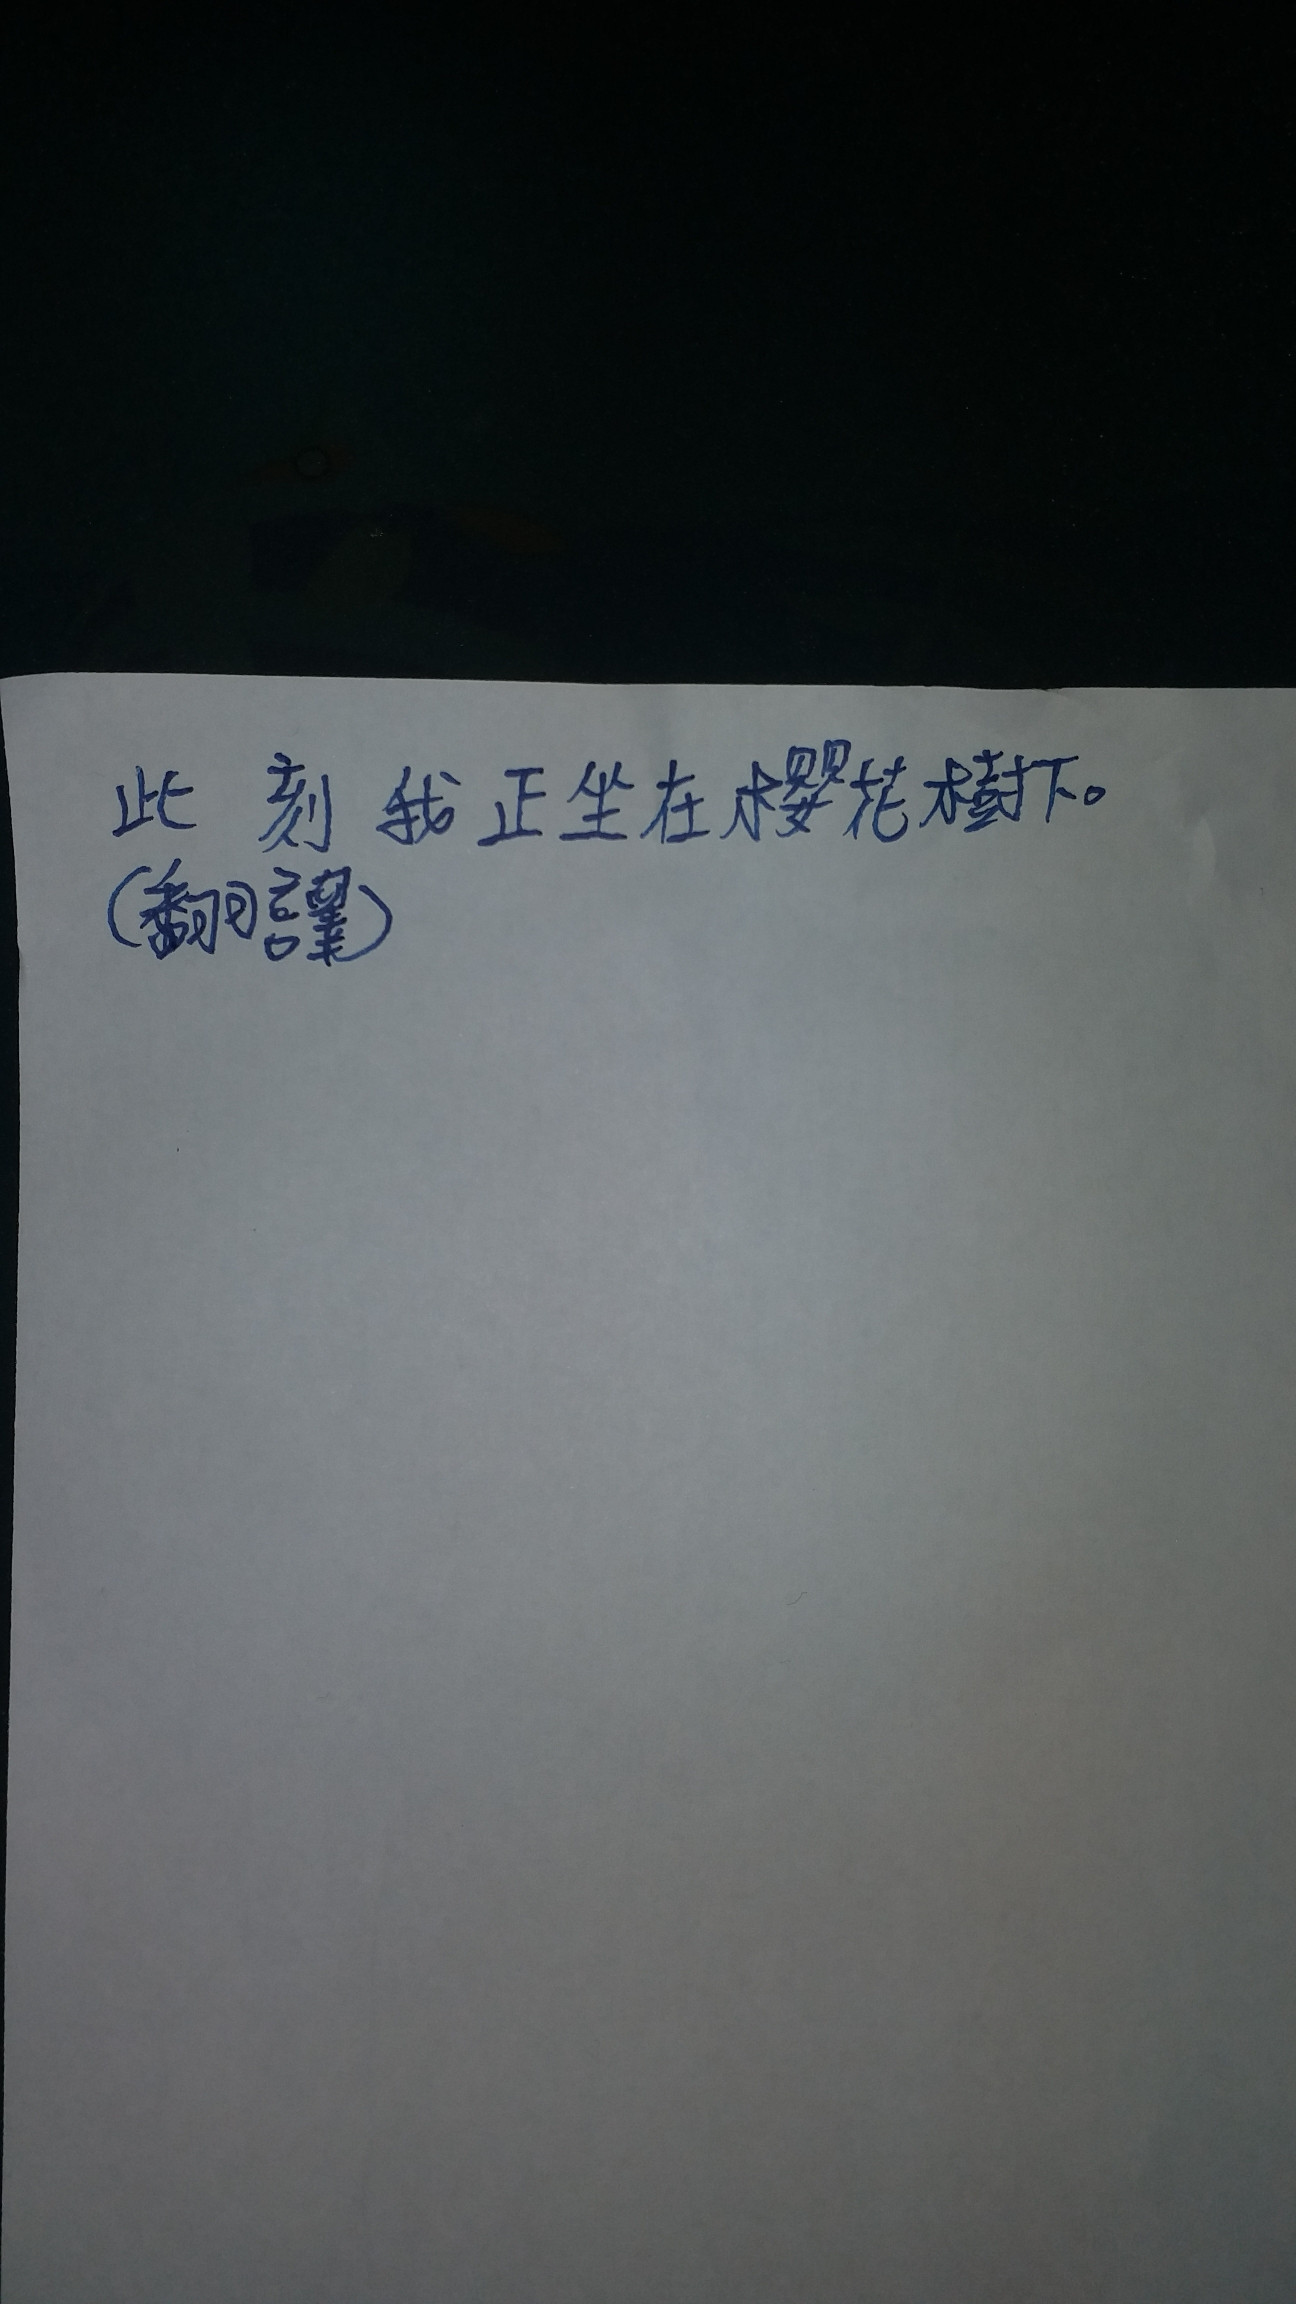 此刻我正坐在櫻花樹下。
(翻譯)